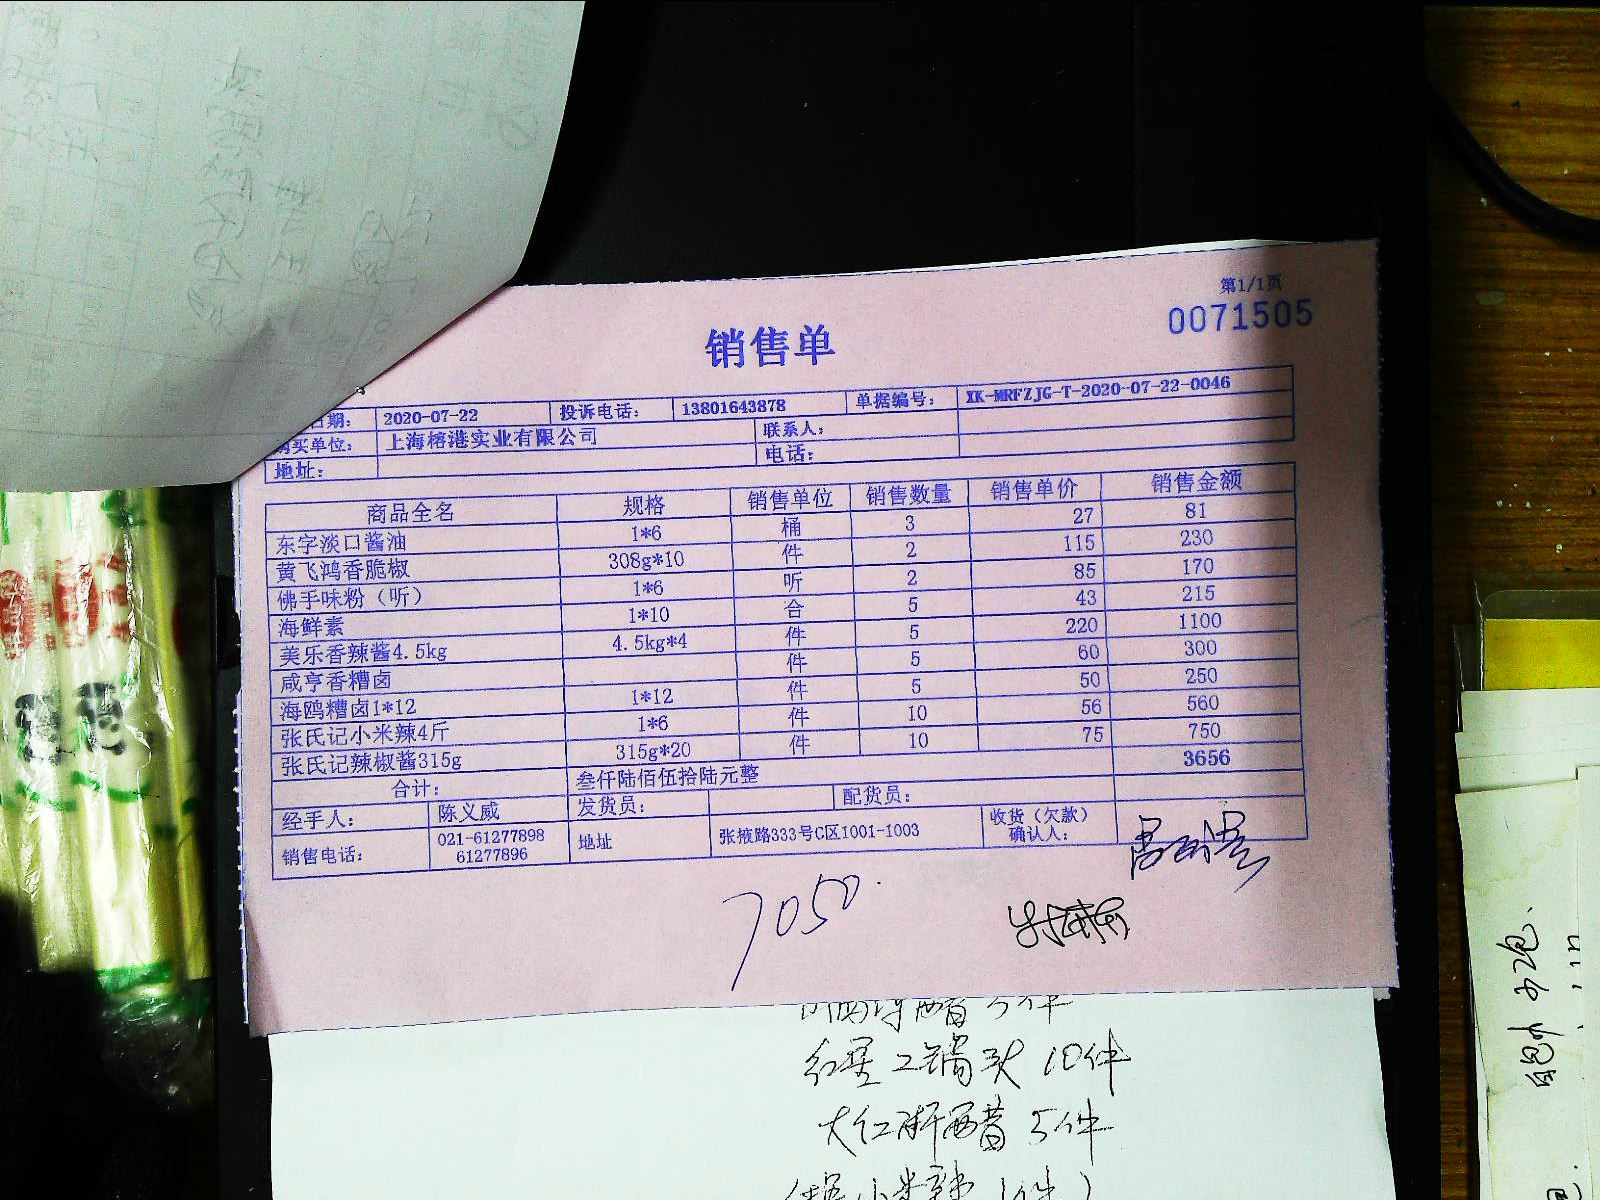 第1/1页
0071505
销售单
日期： 2020-07-22 投诉电话： 13801643878 单据编号： XK-MRFZJG-T-2020-07-22-0046
购买单位： 上海榕港实业有限公司 联系人：
地址： 电话：
商品全名 规格 销售单位 销售数量 销售单价 销售金额
东字淡口酱油 1*6 桶 3 27 81
黄飞鸿香脆椒 308g*10 件 2 115 230
佛手味粉（听） 1*6 听 2 85 170
海鲜素 1*10 合 5 43 215
美乐香辣酱4.5kg 4.5kg*4 件 5 220 1100
咸亨香糟卤 件 5 60 300
海鸥糟卤1*12 1*12 件 5 50 250
张氏记小米辣4斤 1*6 件 10 56 560
张氏记辣椒酱315g 315g*20 件 10 75 750
合计： 叁仟陆佰伍拾陆元整 3656
经手人： 陈义威 发货员： 配货员：
销售电话： 021-61277898 61277896 地址 张掖路333号C区1001-1003 收货（欠款）确认人：
7050
红星二锅头 10件
大红浙醋 5件